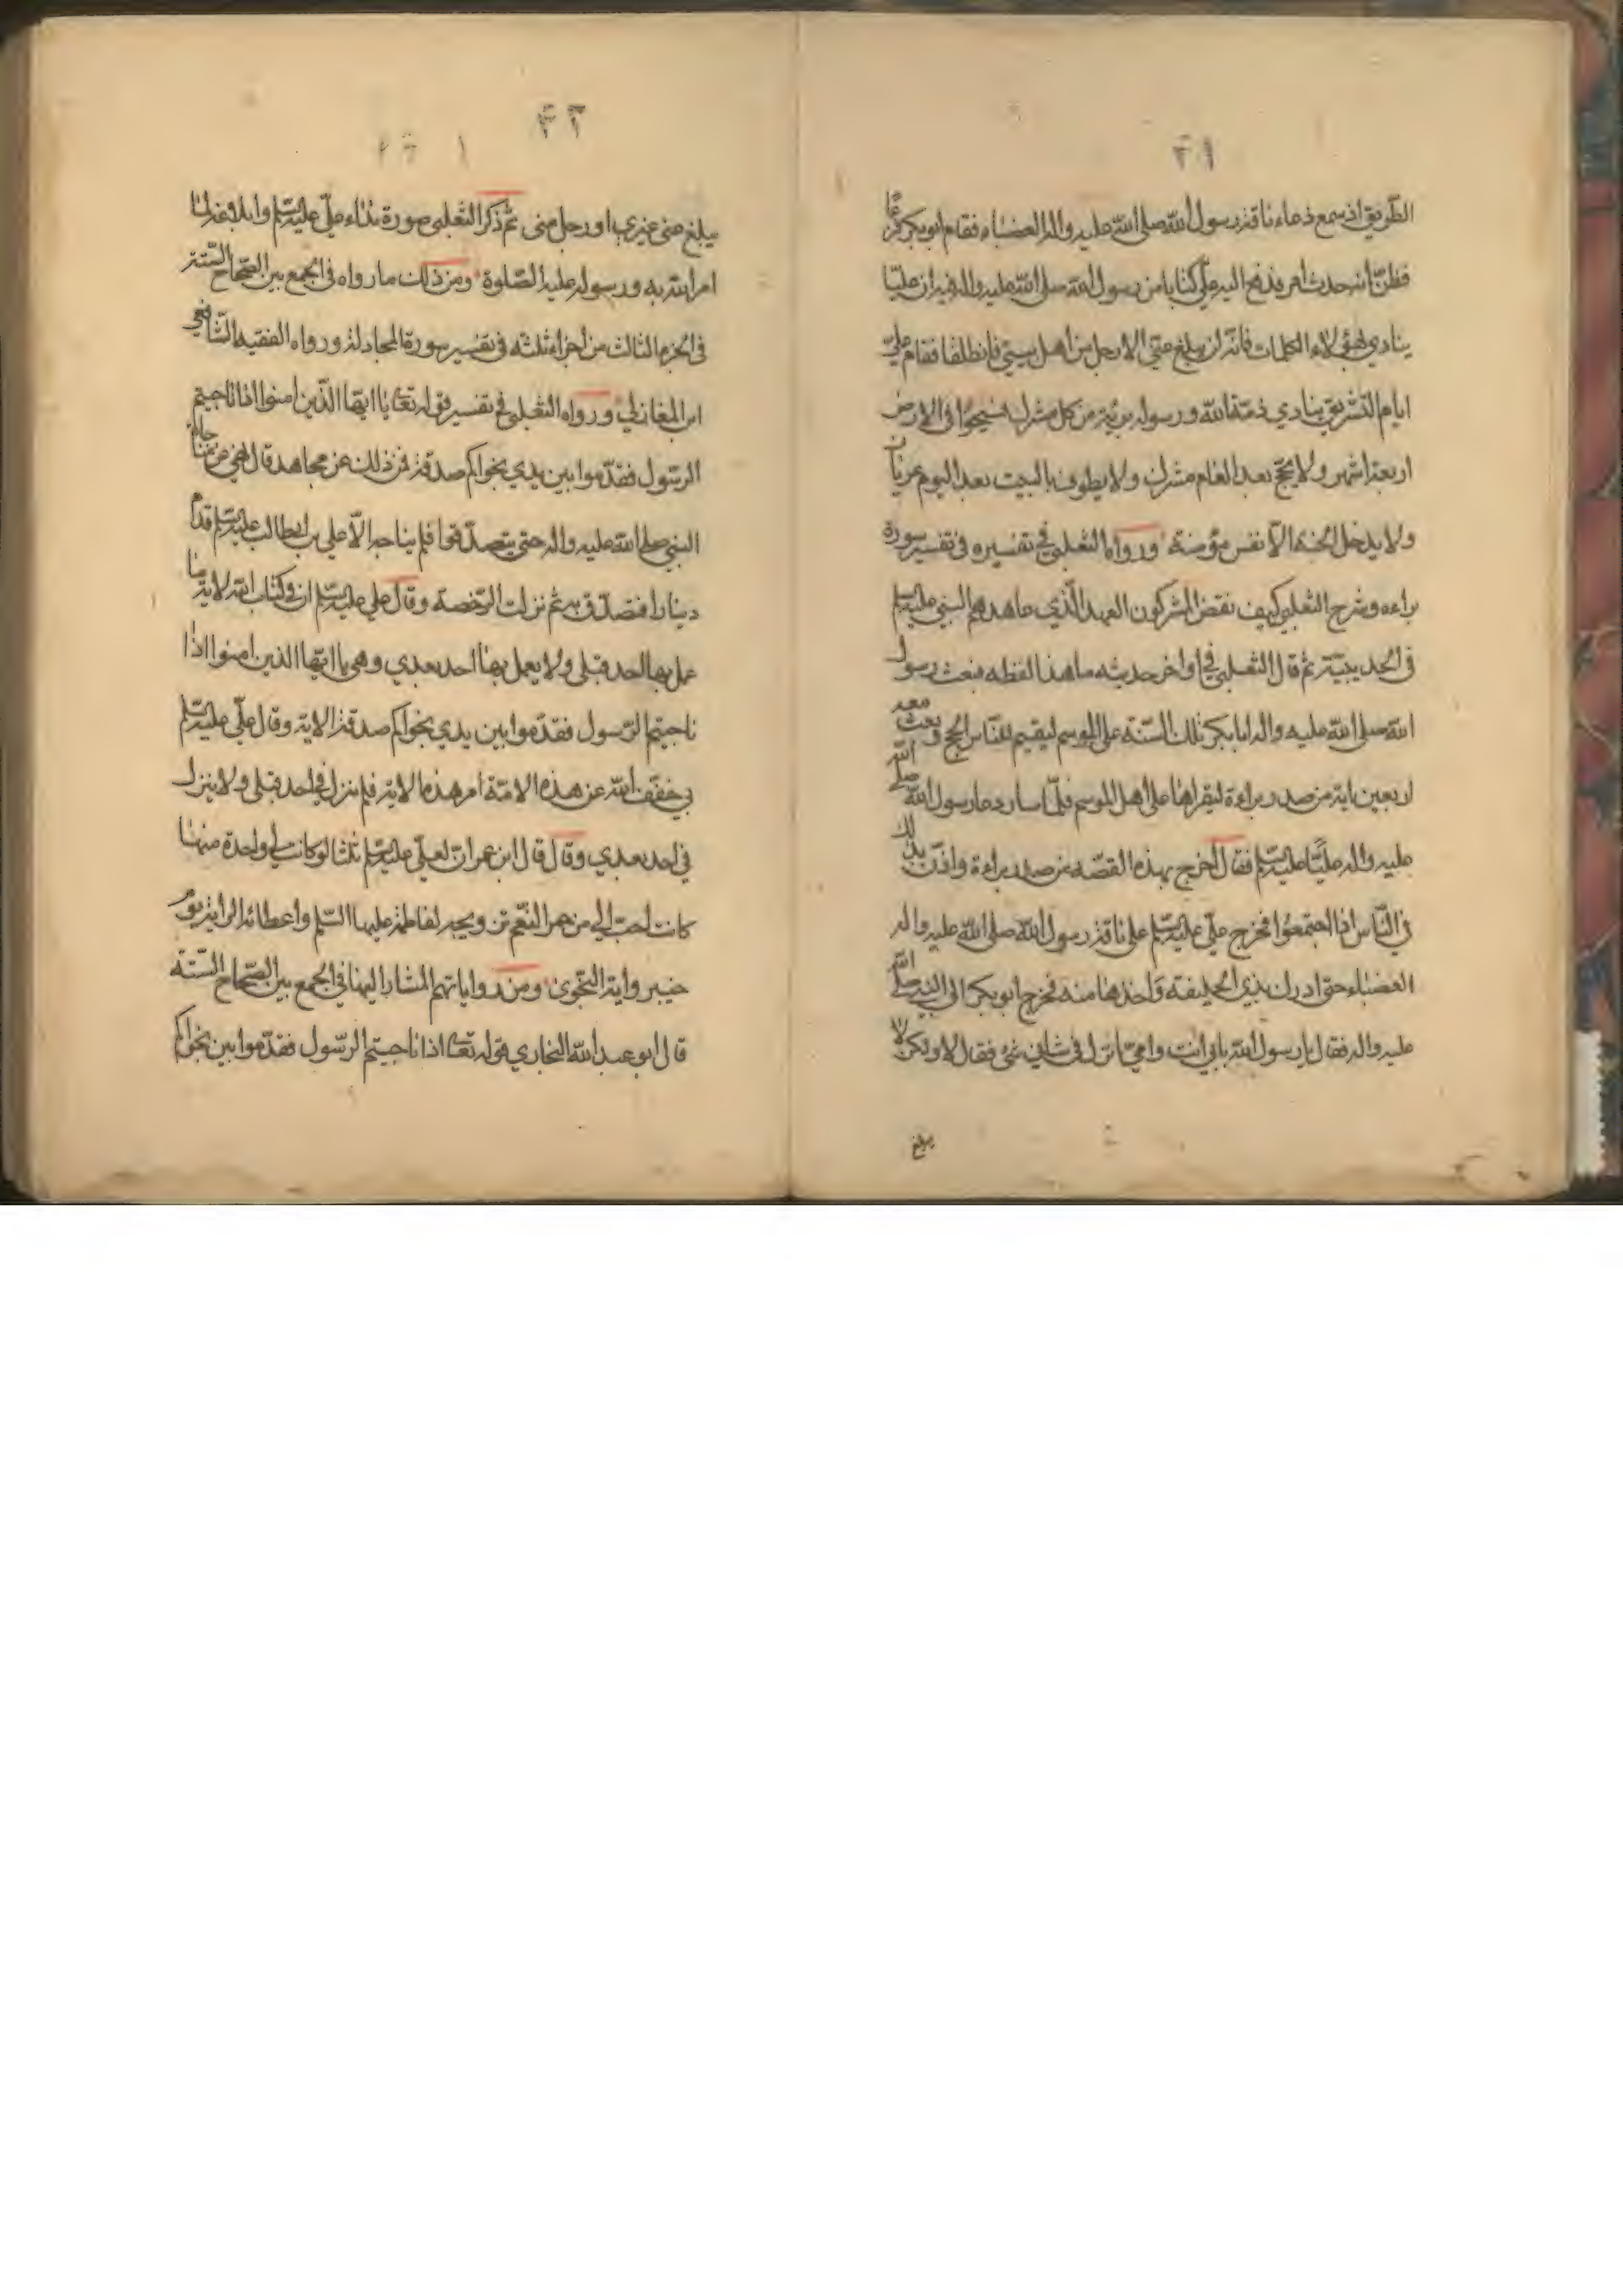 ٤١
الطّريق اذ سمع دعاء ناقة رسول الله صلى الله عليه واله العضباء فقام ابو بكر فزعًا
فظنّ انه حدث امر فدفع اليه عليّ كتابا من رسول الله صلى الله عليه واله فيه ان عليّا
ينادي بهؤلاء الكلمات فانّه لن يبلغ عنّي الا رجل من اهل بيتي فانطلقا فقام عليّ
ايام التشريق ينادي ذمّة الله ورسوله بريّة من كل مشرك فسيحوا في الارض
اربعة اشهر ولا يحجّ بعد العام مشرك ولا يطوف بالبيت بعد اليوم عريان
ولا يدخل الجنة الاّ نفس مؤمنة ورواه الثعلبي في تفسيره في تفسير سورة
براءه وشرح الثعلبي كيف نقض المشركون العهد الّذي عاهدهم النبي عليه السلم
في الحديبيّة ثم قال الثعلبي في اواخر حديثه ما هذا لفظه فبعث رسول
الله صلى الله عليه واله ابا بكر تلك السّنة على الموسم ليقيم للنّاس الحج وبعث معه
اربعين اية من صدر براءة ليقراها على اهل الموسم فلمّا سار دعا رسول الله صلى الله
عليه واله عليّا عليه السلم فقال اخرج بهذه القصّه من صدر براءة واذّن بذلك
في النّاس اذا اجتمعوا فخرج عليّ عليه السلم على ناقة رسول الله صلى الله عليه واله
العضباء حتى ادرك بذي الحليفة واخذها منه فرجع ابو بكر الى النبي صلى الله
عليه واله فقال يا رسول الله بابي انت وامّي انزل في شاني شئ فقال لا ولكن لا
يبلغ
٤٢
يبلغ عني غيري او رجل مني ثم ذكر الثعلبي صورة نداء عليّ عليه السلم وابلاغه لما
امر الله به ورسوله عليه الصّلوة ومن ذلك ما رواه في الجمع بين الصّحاح السّتة
في الجزء الثالث من اجزاء ثلثه في تفسير سورة المجادلة ورواه الفقيه الشّافعي
ابن المغازلي ورواه الثعلبي في تفسير قوله تعالى يا ايّها الّذين امنوا اذا ناجيتم
الرّسول فقدّموا بين يدي نجواكم صدقة فمن ذلك عن مجاهد قال نهي عن مناجاة
النبي صلى الله عليه واله حتى يتصدّقوا فلم يناجه الاّ علي بن ابي طالب عليه السلم قدّم
دينارا فتصدّق به ثم نزلت الرّخصة وقال علي عليه السلم ان في كتاب الله لاية ما
عمل بها احد قبلي ولا يعمل بها احد بعدي وهي يا ايّها الذين امنوا اذا
ناجيتم الرّسول فقدّموا بين يدي نجواكم صدقة الاية وقال عليّ عليه السلم
بي خفّف الله عن هذه الامّة امر هذه الاية فلم ينزل في احد قبلي ولا ينزل
في احد بعدي وقال قال ابن عمر ان لعلي عليه السلم ثلثا لو كانت لي واحدة منها
كانت احبّ اليّ من حمر النعم تزويجه لفاطمة عليها السّلم واعطائه الراية يوم
خيبر واية النّجوى ومن رواياتهم المشار اليها في الجمع بين الصّحاح السّتة
قال ابو عبد الله البخاري قوله تعالى اذا ناجيتم الرّسول فقدّموا بين نجواكم